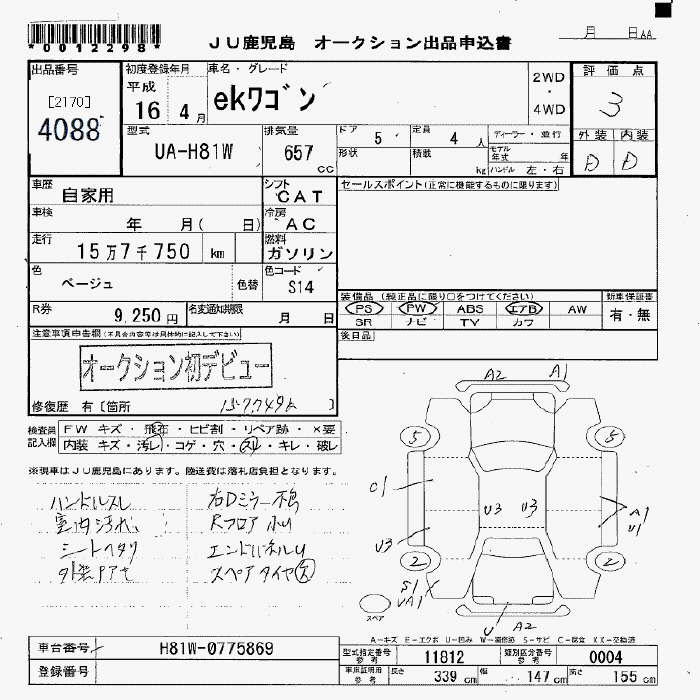 *0012298*
JU鹿児島 オークション出品申込書
月 日
出品番号 初度登録年月 車名・グレード 評価点
[2170]
4088
平成
16 4月
ekワゴン
2WD
・
4WD
3
外装 内装
D D
型式 排気量 ドア 5 定員 4人 ディーラー・並行
UA-H81W 657cc 形状 積載 kg モデル年式 年
ハンドル 左・右
車歴 自家用 シフト CAT セールスポイント(正常に機能するものに限ります)
車検 年 月( 日) 冷房 AC
走行 15万7千750 km 燃料 ガソリン
色 ベージュ 色替 色コード S14
R券 9,250円 名変通知期限 月 日
装備品 (純正品に限り○をつけてください) 新車保証書
PS PW ABS エアB AW 有・無
SR ナビ TV カワ
注意事項申告欄(不具合内容等は具体的に記入して下さい) 後日品
オークション初デビュー
修復歴 有〔箇所 157749k 〕
検査員記入欄
FW キズ・飛石・ヒビ割・リペア跡・×要
内装 キズ・汚レ・コゲ・穴・スレ・キレ・破レ
※現車はJU鹿児島にあります。陸送費は落札店負担となります。
ハンドルスレ 右Dミラー不良
室内汚れ Rフロア小U
シートヘタリ エンドパネルU
外装Pアセ スペアタイヤ欠
A2 A1
5 5
C1 U3 U3 A1
U3 U1
2 2
S1
UA1
スペア
U A2
A−キズ E−エクボ U−凹み W−補修跡 S−サビ C−腐食 XX−交換済
車台番号 H81W-0775869 型式指定番号 参考 11812 類別区分番号 参考 0004
登録番号 車庫証明用 参考 長さ 339cm 幅 147cm 高さ 155cm